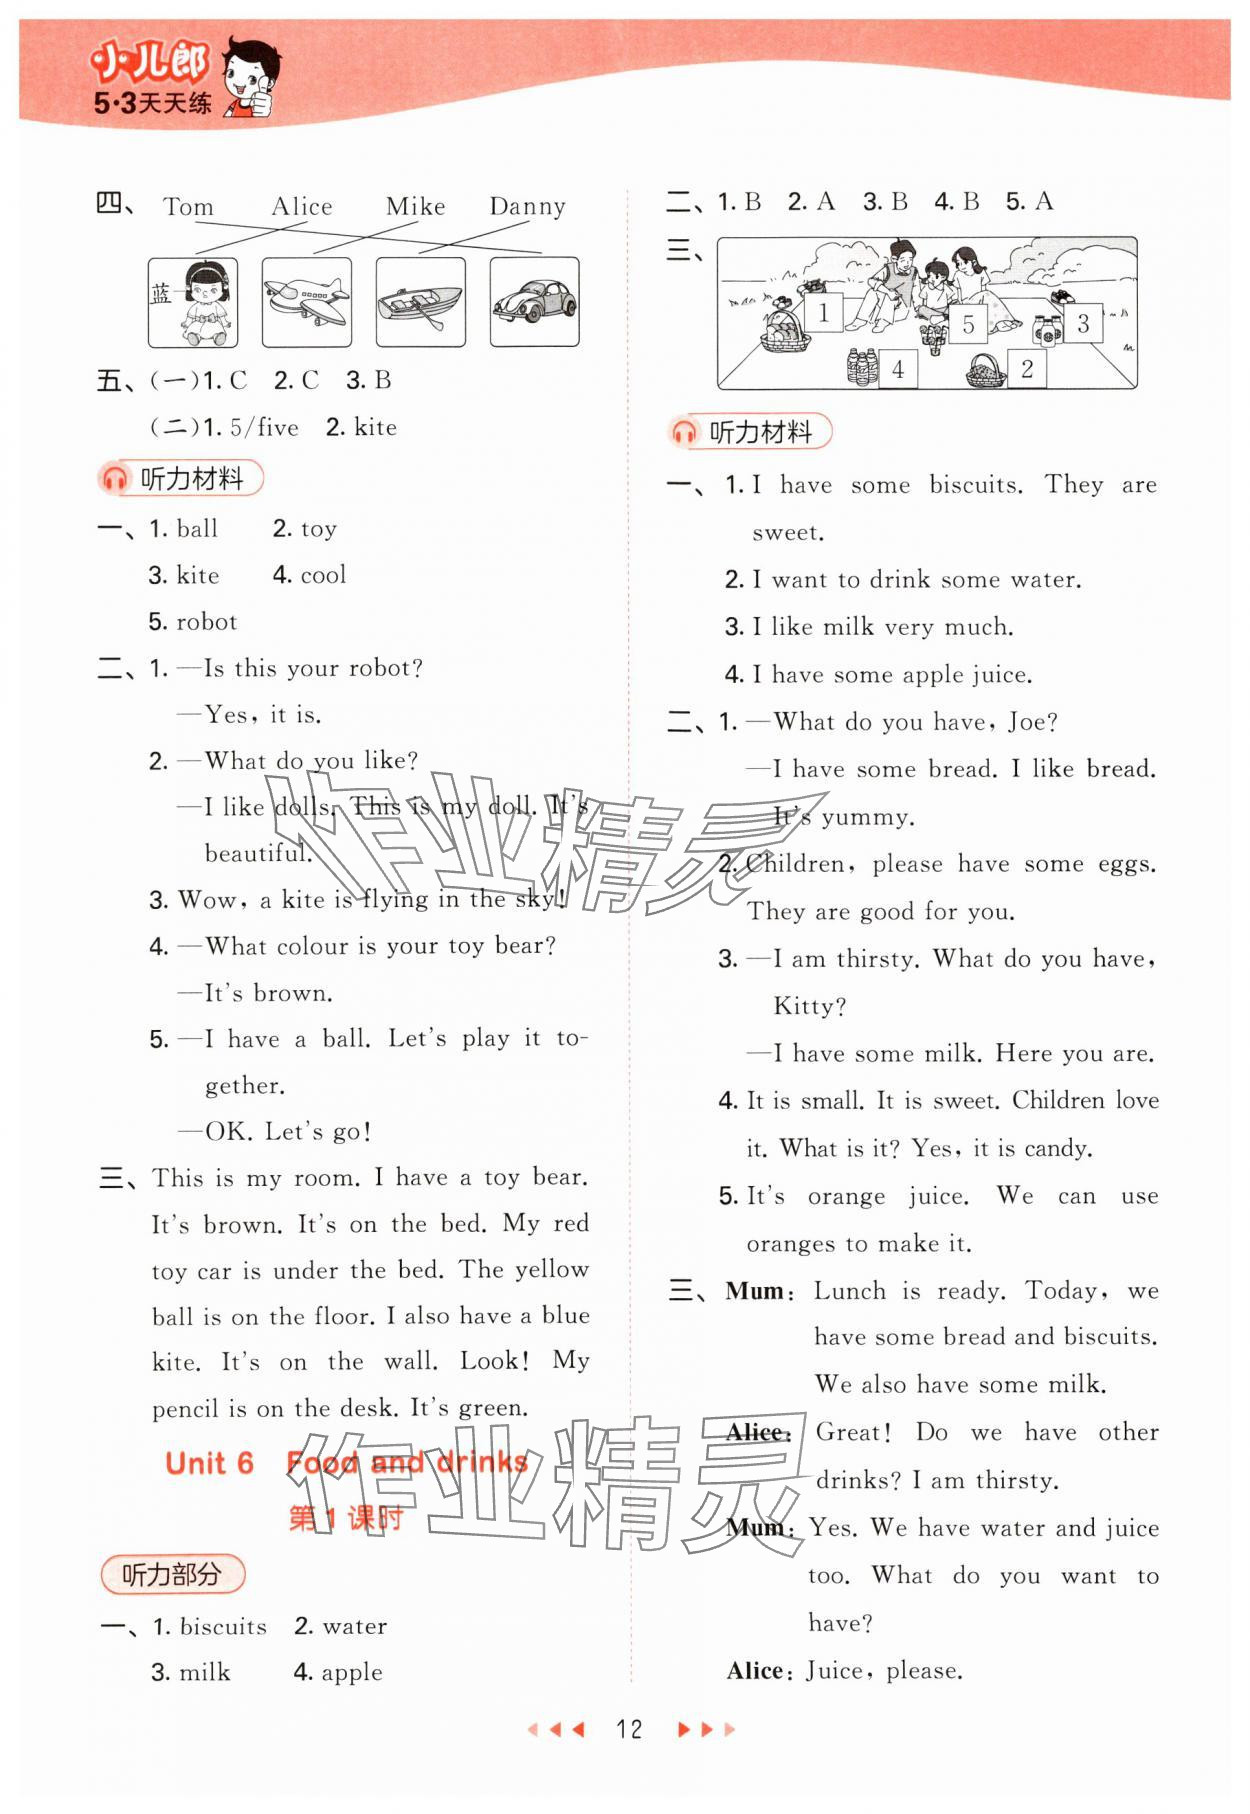 小儿郎
5·3天天练
四、 Tom Alice Mike Danny
蓝
五、(一)1. C 2. C 3. B
(二)1. 5/five 2. kite
听力材料
一、1. ball 2. toy
3. kite 4. cool
5. robot
二、1. —Is this your robot?
—Yes, it is.
2. —What do you like?
—I like dolls. This is my doll. It's
beautiful.
3. Wow, a kite is flying in the sky!
4. —What colour is your toy bear?
—It's brown.
5. —I have a ball. Let's play it to-
gether.
—OK. Let's go!
三、This is my room. I have a toy bear.
It's brown. It's on the bed. My red
toy car is under the bed. The yellow
ball is on the floor. I also have a blue
kite. It's on the wall. Look! My
pencil is on the desk. It's green.
Unit 6 Food and drinks
第1课时
听力部分
一、1. biscuits 2. water
3. milk 4. apple
二、1. B 2. A 3. B 4. B 5. A
三、
1
5
3
4
2
听力材料
一、1. I have some biscuits. They are
sweet.
2. I want to drink some water.
3. I like milk very much.
4. I have some apple juice.
二、1. —What do you have, Joe?
—I have some bread. I like bread.
It's yummy.
2. Children, please have some eggs.
They are good for you.
3. —I am thirsty. What do you have,
Kitty?
—I have some milk. Here you are.
4. It is small. It is sweet. Children love
it. What is it? Yes, it is candy.
5. It's orange juice. We can use
oranges to make it.
三、Mum: Lunch is ready. Today, we
have some bread and biscuits.
We also have some milk.
Alice: Great! Do we have other
drinks? I am thirsty.
Mum: Yes. We have water and juice
too. What do you want to
have?
Alice: Juice, please.
12
作业精灵
作业精灵